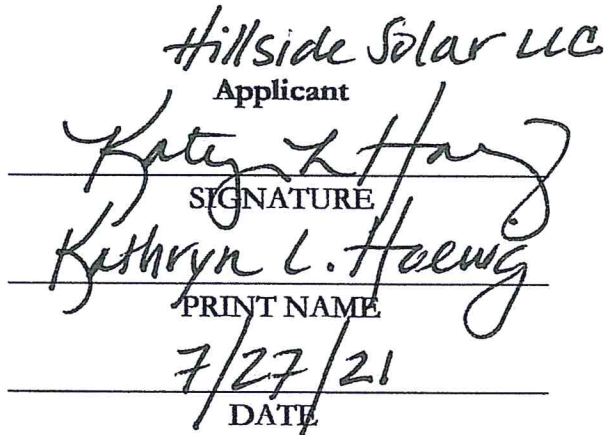 Hillside Solar LLC
Applicant
SIGNATURE
Kathryn L. Hoewig
PRINT NAME
7/27/21
DATE